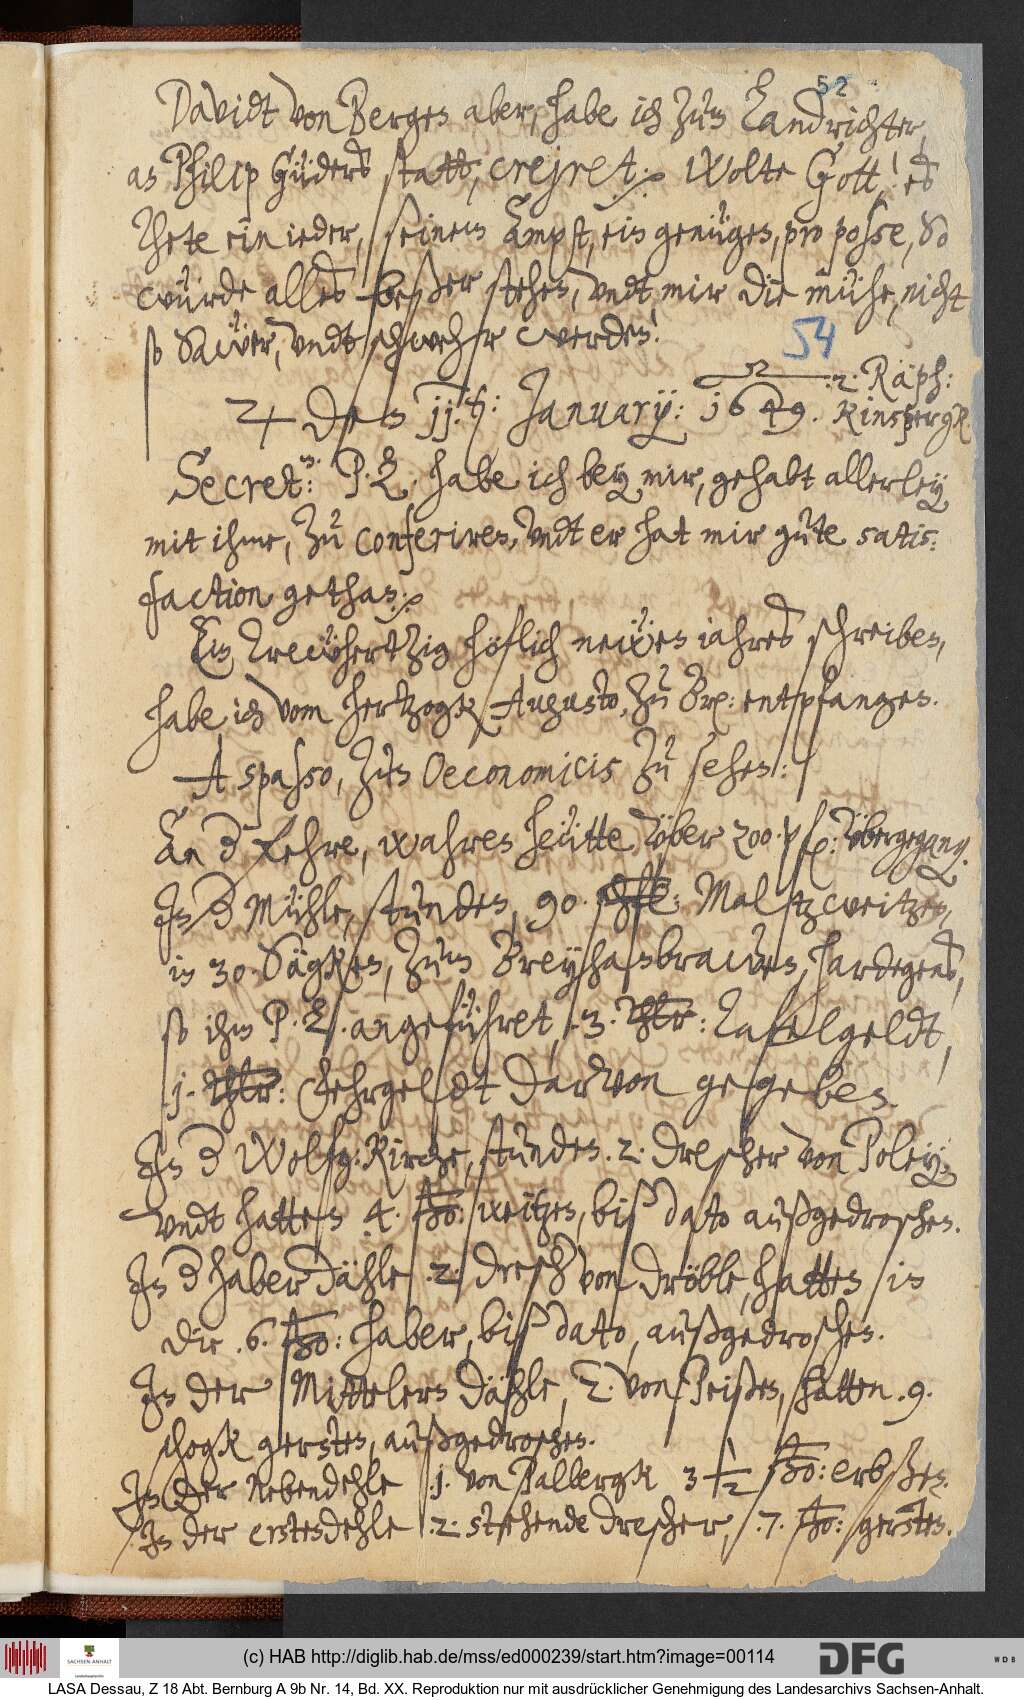 52
Davidt von Berges aber, habe ich zum Landrichter,
an Philip Güders statt, creiret. Wolte Gott! es
thete ein ieder, seinem Ampt, ein genüges, pro posse, So
würde alles beßer stehen, undt mir die mühe, nicht
so Sawer, undt schwehr werden!
54
♃ den 11.ten: January: 1649. .2. Raph:
Kinspergk.
Secret: P. L. habe ich bey mir, gehabt allerley
mit ihme, zu conferiren, undt er hat mir gute satis:
faction gethan.
Ein trewhertzig höflich newes iahres schreiben,
habe ich vom hertzogk Augusto, zu entpfangen.
A spasso, zun Oeconomicis zu sehen:
An der Fehre, wahren heütte über 200. übergegang.
In der Mühle, stunden, 90. Maltzweitzen,
in 30. Sägken, zum Breyhanbrawen, hardegens,
so ihm P. L. angeführet, .3. Thlr: Tafelgeldt,
.1. Thlr: Fehrgeldt darvon gegeben.
In der Wolfg: Kirche, stunden .2. drescher von Poley,
undt hatten 4. ßo: weitzen, biß dato außgedroschen.
In der haber dähle .2. dresch von dröble, hatten in
die .6. ßo: haber, biß dato, außgedroschen.
In der Mittelern dähle, 2. von Peißen, hatten .9.
schogk gersten, außgedroschen.
In der Nebendehle .1. von Palbergk 3 1/2 ßo: erbßen.
In der erstendehle .2. stehende drescher, .7. ßo: gersten.
(c) HAB http://diglib.hab.de/mss/ed000239/start.htm?image=00114
SACHSEN-ANHALT
DFG
WDB
LASA Dessau, Z 18 Abt. Bernburg A 9b Nr. 14, Bd. XX. Reproduktion nur mit ausdrücklicher Genehmigung des Landesarchivs Sachsen-Anhalt.